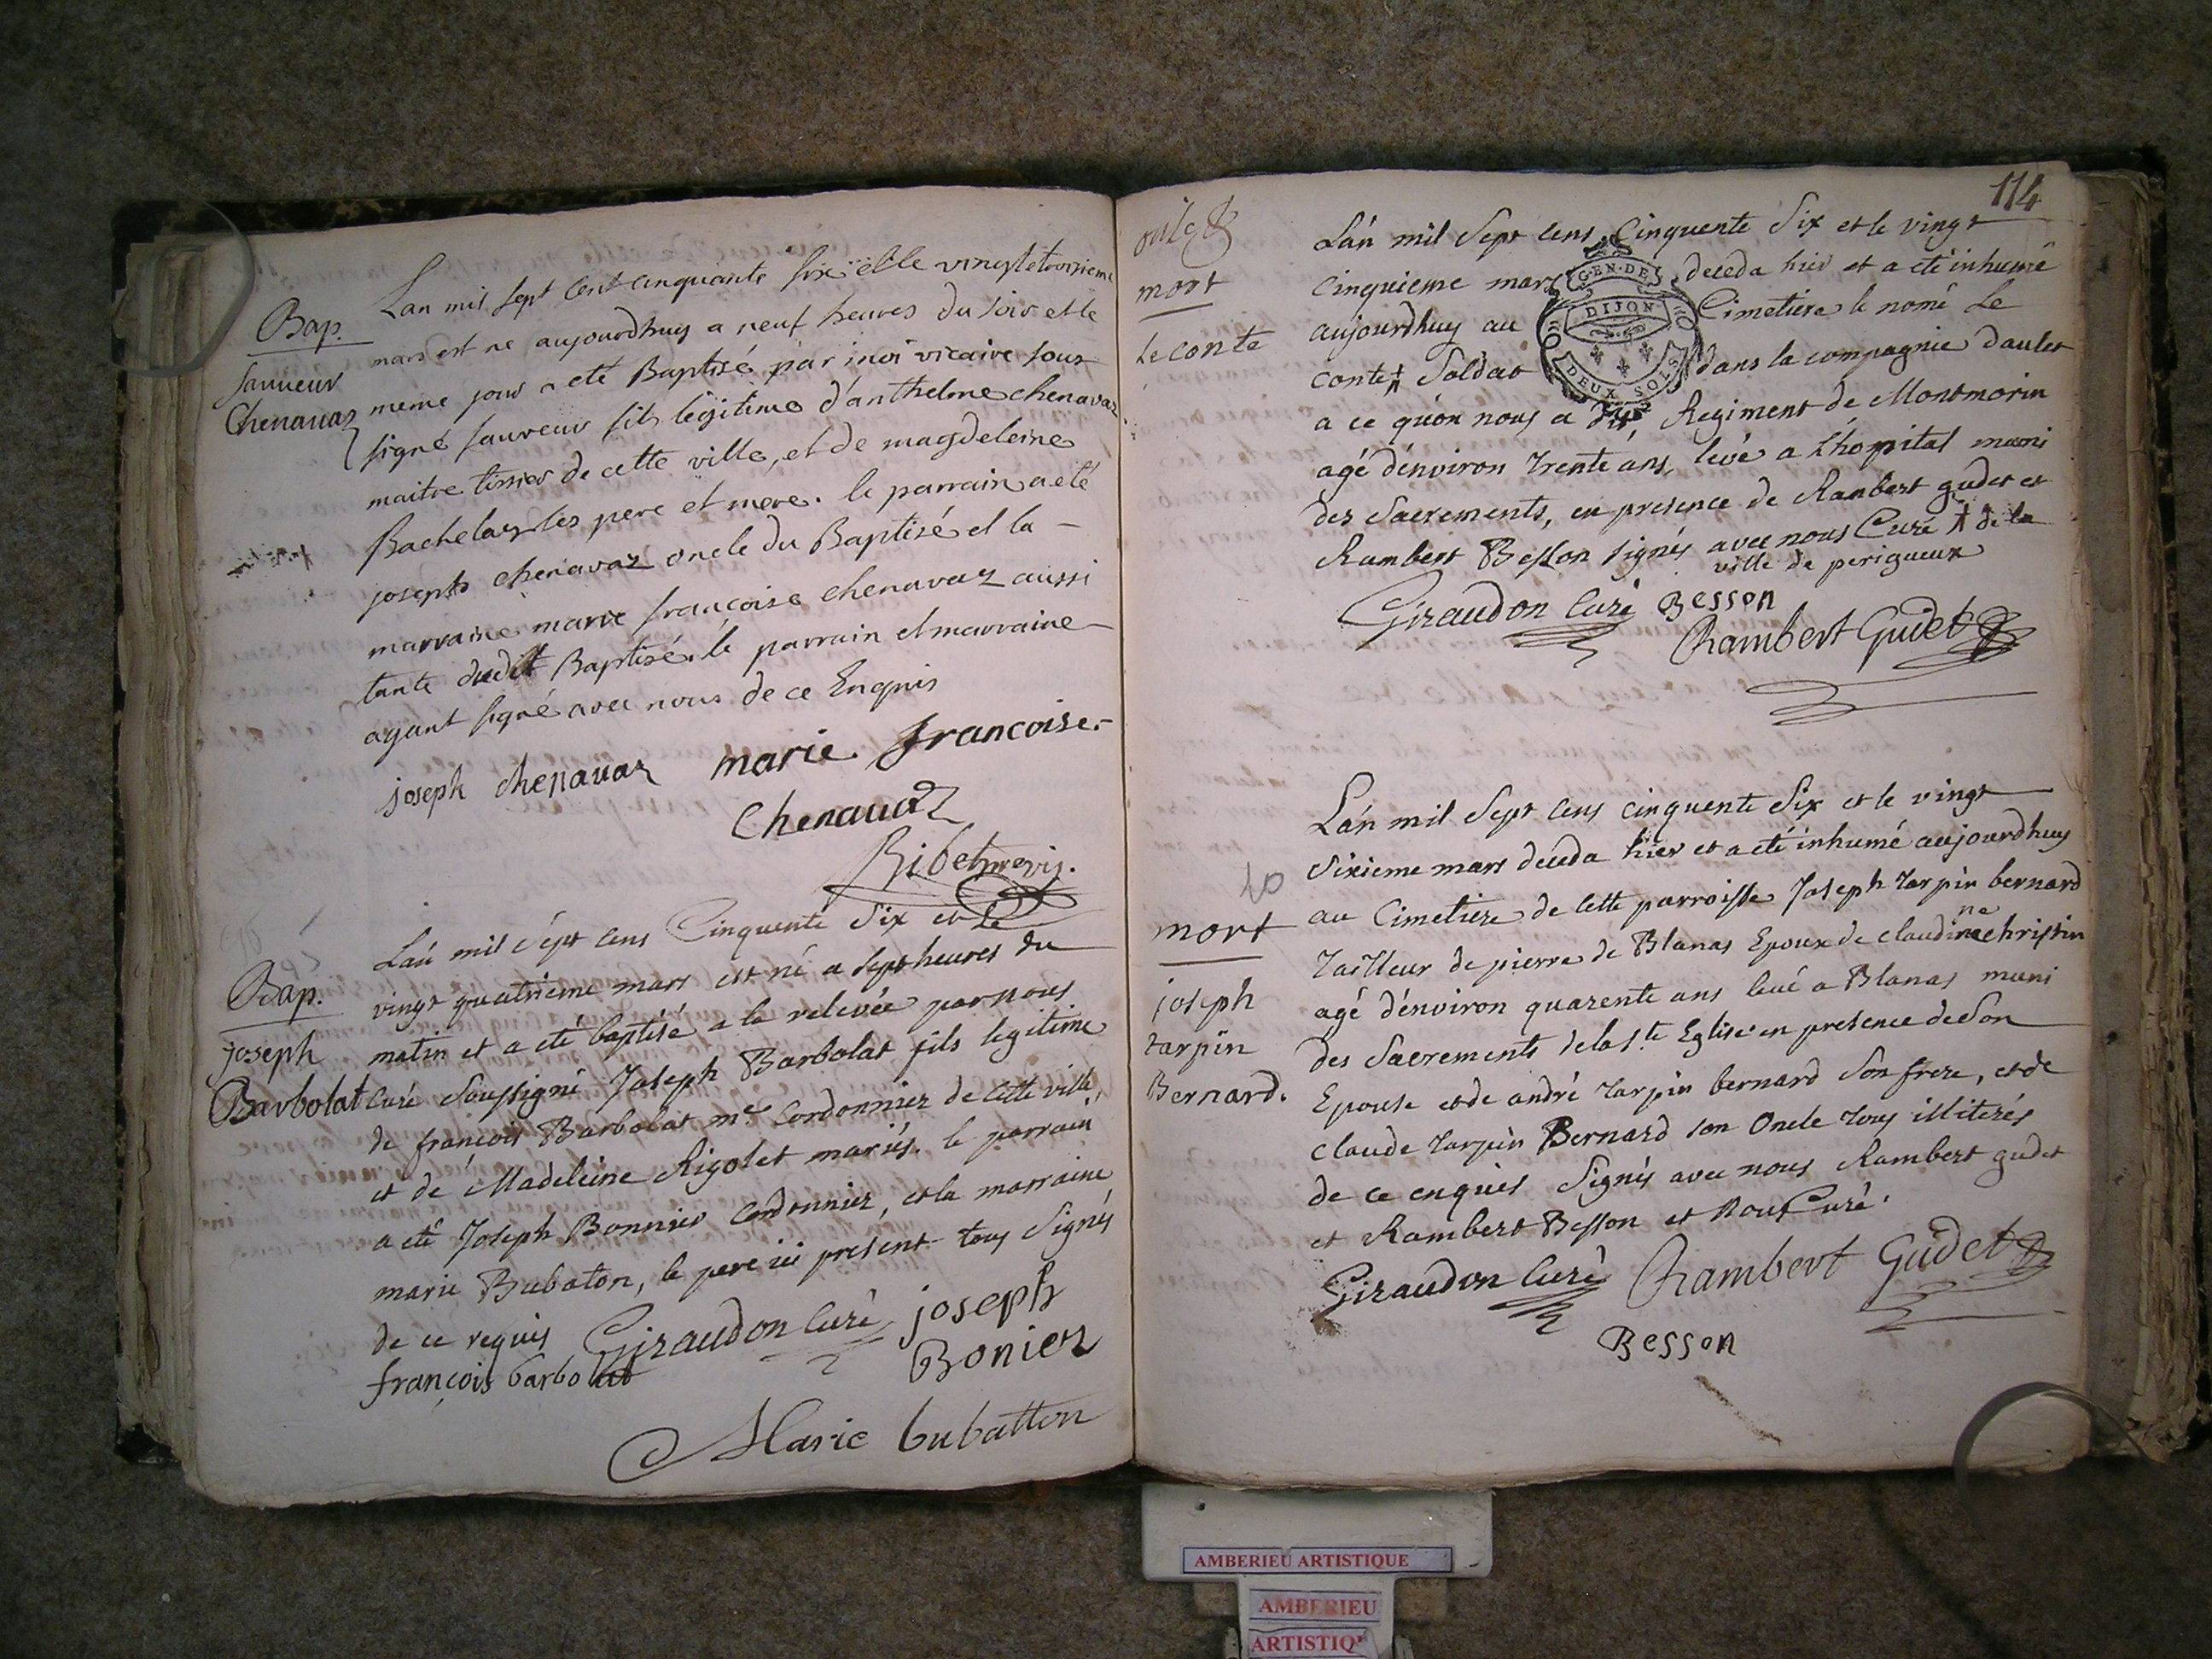 Bap.
Sauveur
Chenavaz
Lan mil sept Cent cinquante six et le vingtetroisieme
mars est ne aujourdhuy a neuf heures du soir et le
meme jour a eté Baptisé par moi vicaire sous
signé sauveur fils légitime d'anthelme chenavaz
maitre tissier de cette ville, et de magdeleine
Bachelaz ses pere et mere. le parrain a eté
joseph chenavaz oncle du Baptisé et la -
marraine marie françoise chenavaz aussi
tante dudit Baptisé. le parrain et marraine
ayant signé avec nous de ce Enquis
joseph chenavaz marie francoise
Chenavaz
Bap.
joseph
Barbolat
Lán mil sépt cens Cinquente Six et le
vingt quatrieme mars est né a sept heures du
matin et a eté baptisé a la relevée par nous
Curé soussigné Joseph Barbolat fils legitime
de françois Barbolat me Cordonnier de cette ville,
et de Madeleine Rigolet mariés. le parrain
a eté Joseph Bonnier Cordonnier, et la marraine
marie Bubaton, le pere ici present tous Signés
de ce requis Giraudon Curé joseph
françois barbolat Bonier
Marie bubatton
114
mort
Le conte
Lán mil Sept cens Cinquente Six et le vingt
cinquieme mars deceda hier et a eté inhumé
aujourdhuy au Cimetiere le nomé Le
conte Soldat dans la compagnie daulet
a ce qu'on nous a dit, Regiment de Montmorin
agé dénviron trente ans, levé a Lhopital muni
des Sacrements, en presence de Rambert gudet et
Rambert Besson signés avec nous Curé de la
ville de perigueux
G·EN·DE
DIJON
DEUX SOLS
Giraudon Curé Besson
Rambert Gudet
mort
joseph
tarpin
Bernard.
Lán mil Sept cens cinquente Six et le vingt
Sixieme mars deceda hier et a eté inhumé aujourdhuy
au Cimetiere de cette parroisse Joseph tarpin bernard
tailleur de pierre de Blanas Epoux de claudine christin
agé dénviron quarente ans levé a Blanas muni
des Sacrements de la Ste Eglise en presence de Son
Epouse et de andré tarpin bernard Son frere, et de
claude tarpin Bernard son Oncle tous illiterés
de ce enquis Signés avec nous Rambert gudet
et Rambert Besson et Nous Curé.
Giraudon Curé Rambert Gudet
Besson
AMBERIEU ARTISTIQUE
AMBERIEU
ARTISTIQ